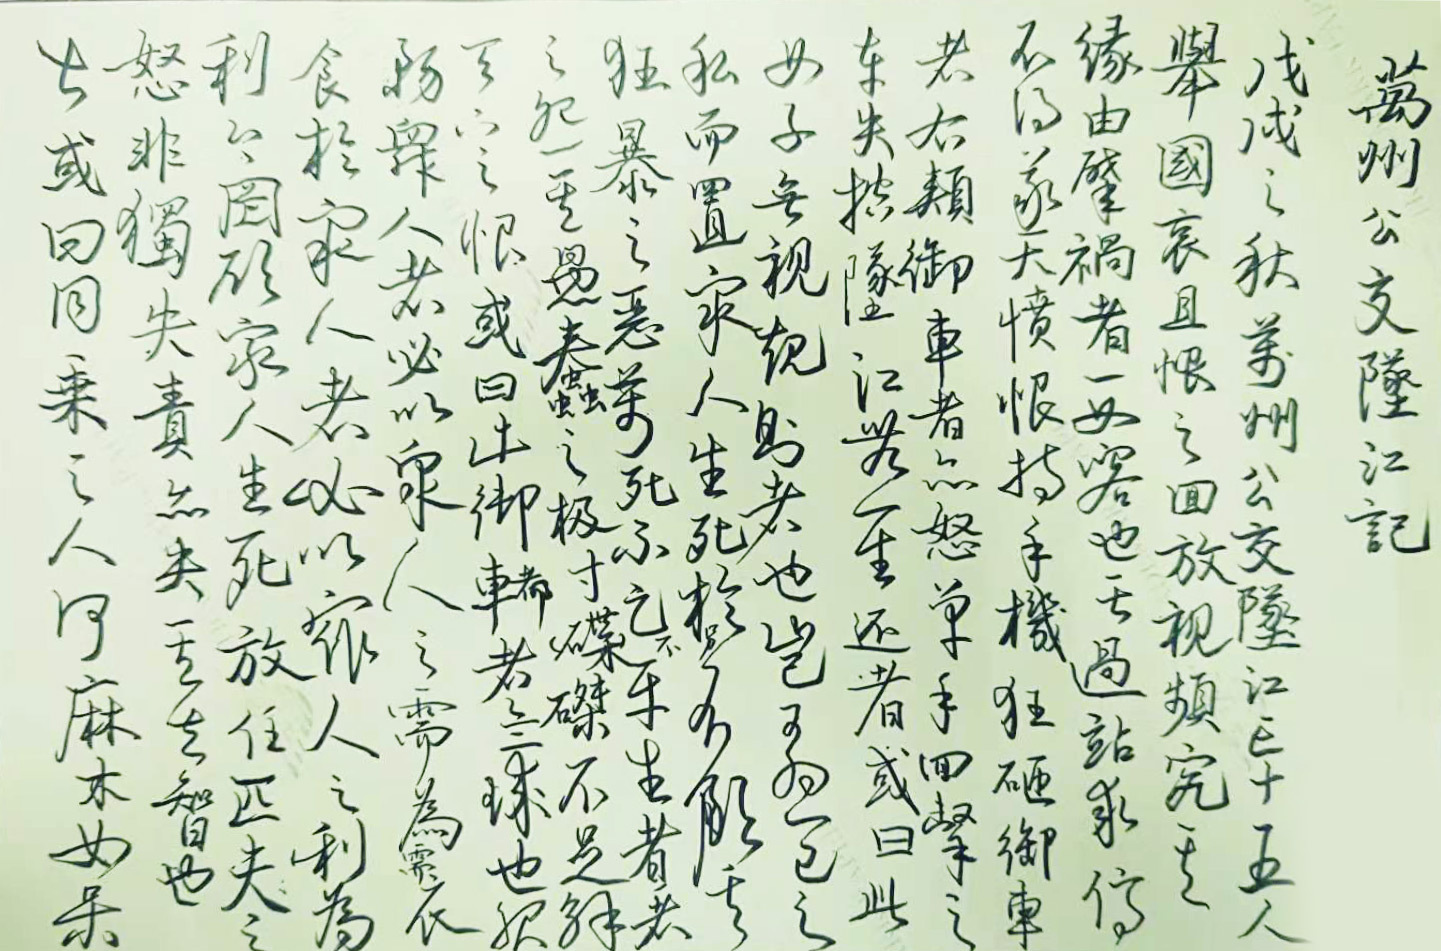 萬州公交墜江記
戊戌之秋萬州公交墜江亡十五人
舉國哀且恨之回放視頻究其
緣由肇禍者一女客也其過站求停
不得遂大憤恨持手機狂砸御車
者右頰御車者亦怒單手回擊之
車失控墜江無一生還者或曰此
女子無視規則者也豈可為一己之
私而置眾人生死於不顧其
狂暴之惡萬死不
之怨其愚蠢之極寸磔磔不足解
天下之恨或曰此御車者亦球也
務眾人者必以眾人之需為需衣
食於眾人者必以眾人之利為
利之圖顧眾人生死放任匹夫之
怒非獨失責亦失其智也
或曰同乘之人何麻木如呆